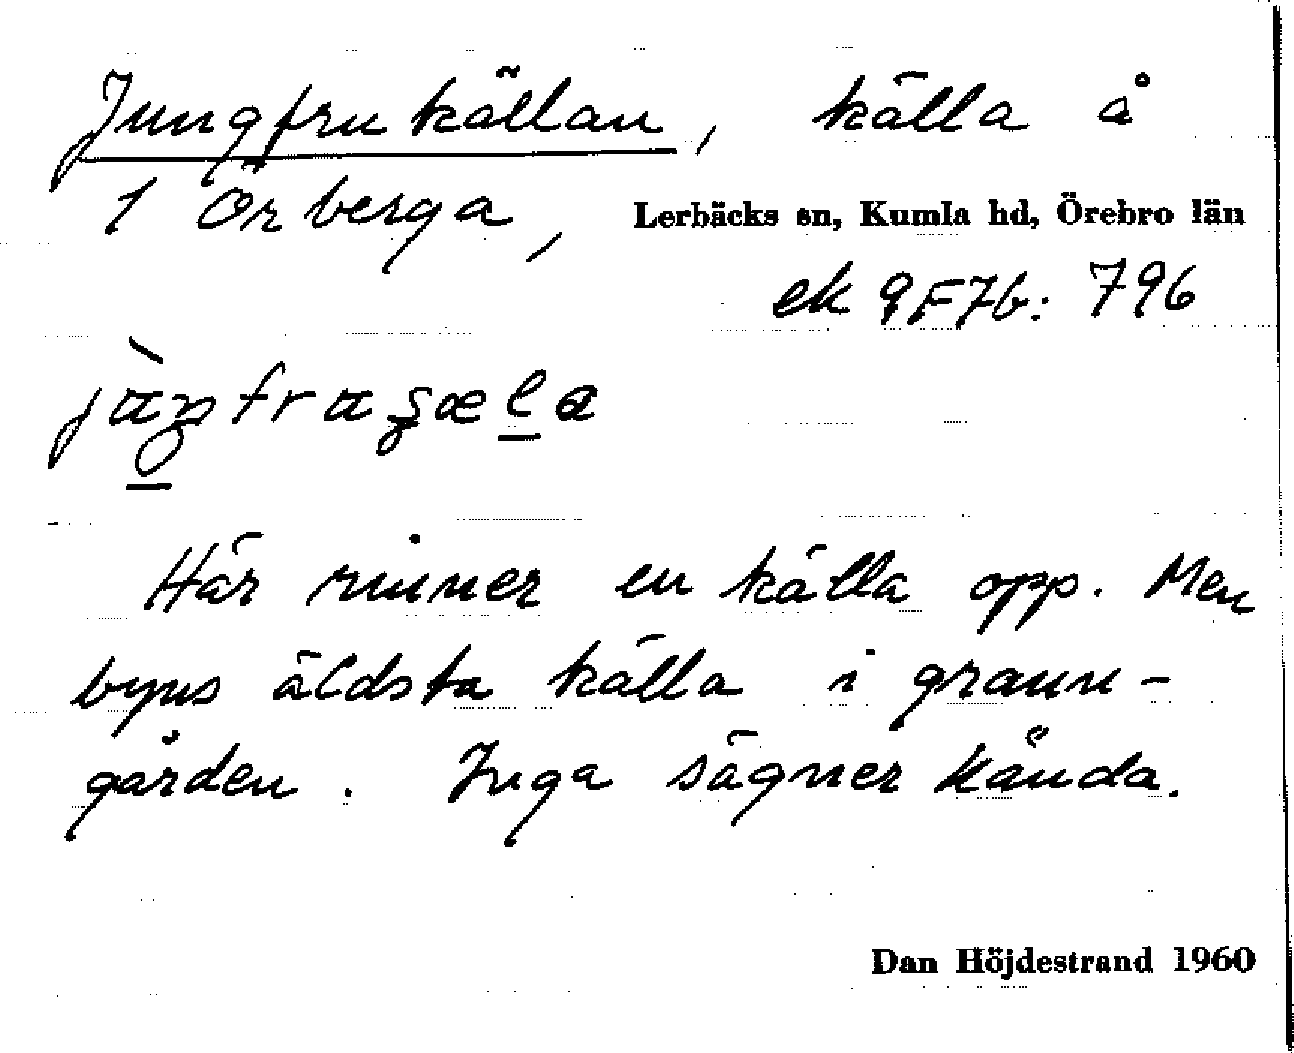 Jungfrukällan, källa å
1 Örberga, Lerbäcks sn, Kumla hd, Örebro län
ek 9F7b: 796
Här rinner en källa opp. Men
byns äldsta källa i grann-
gården. Inga sägner kända.
Dan Höjdestrand 1960